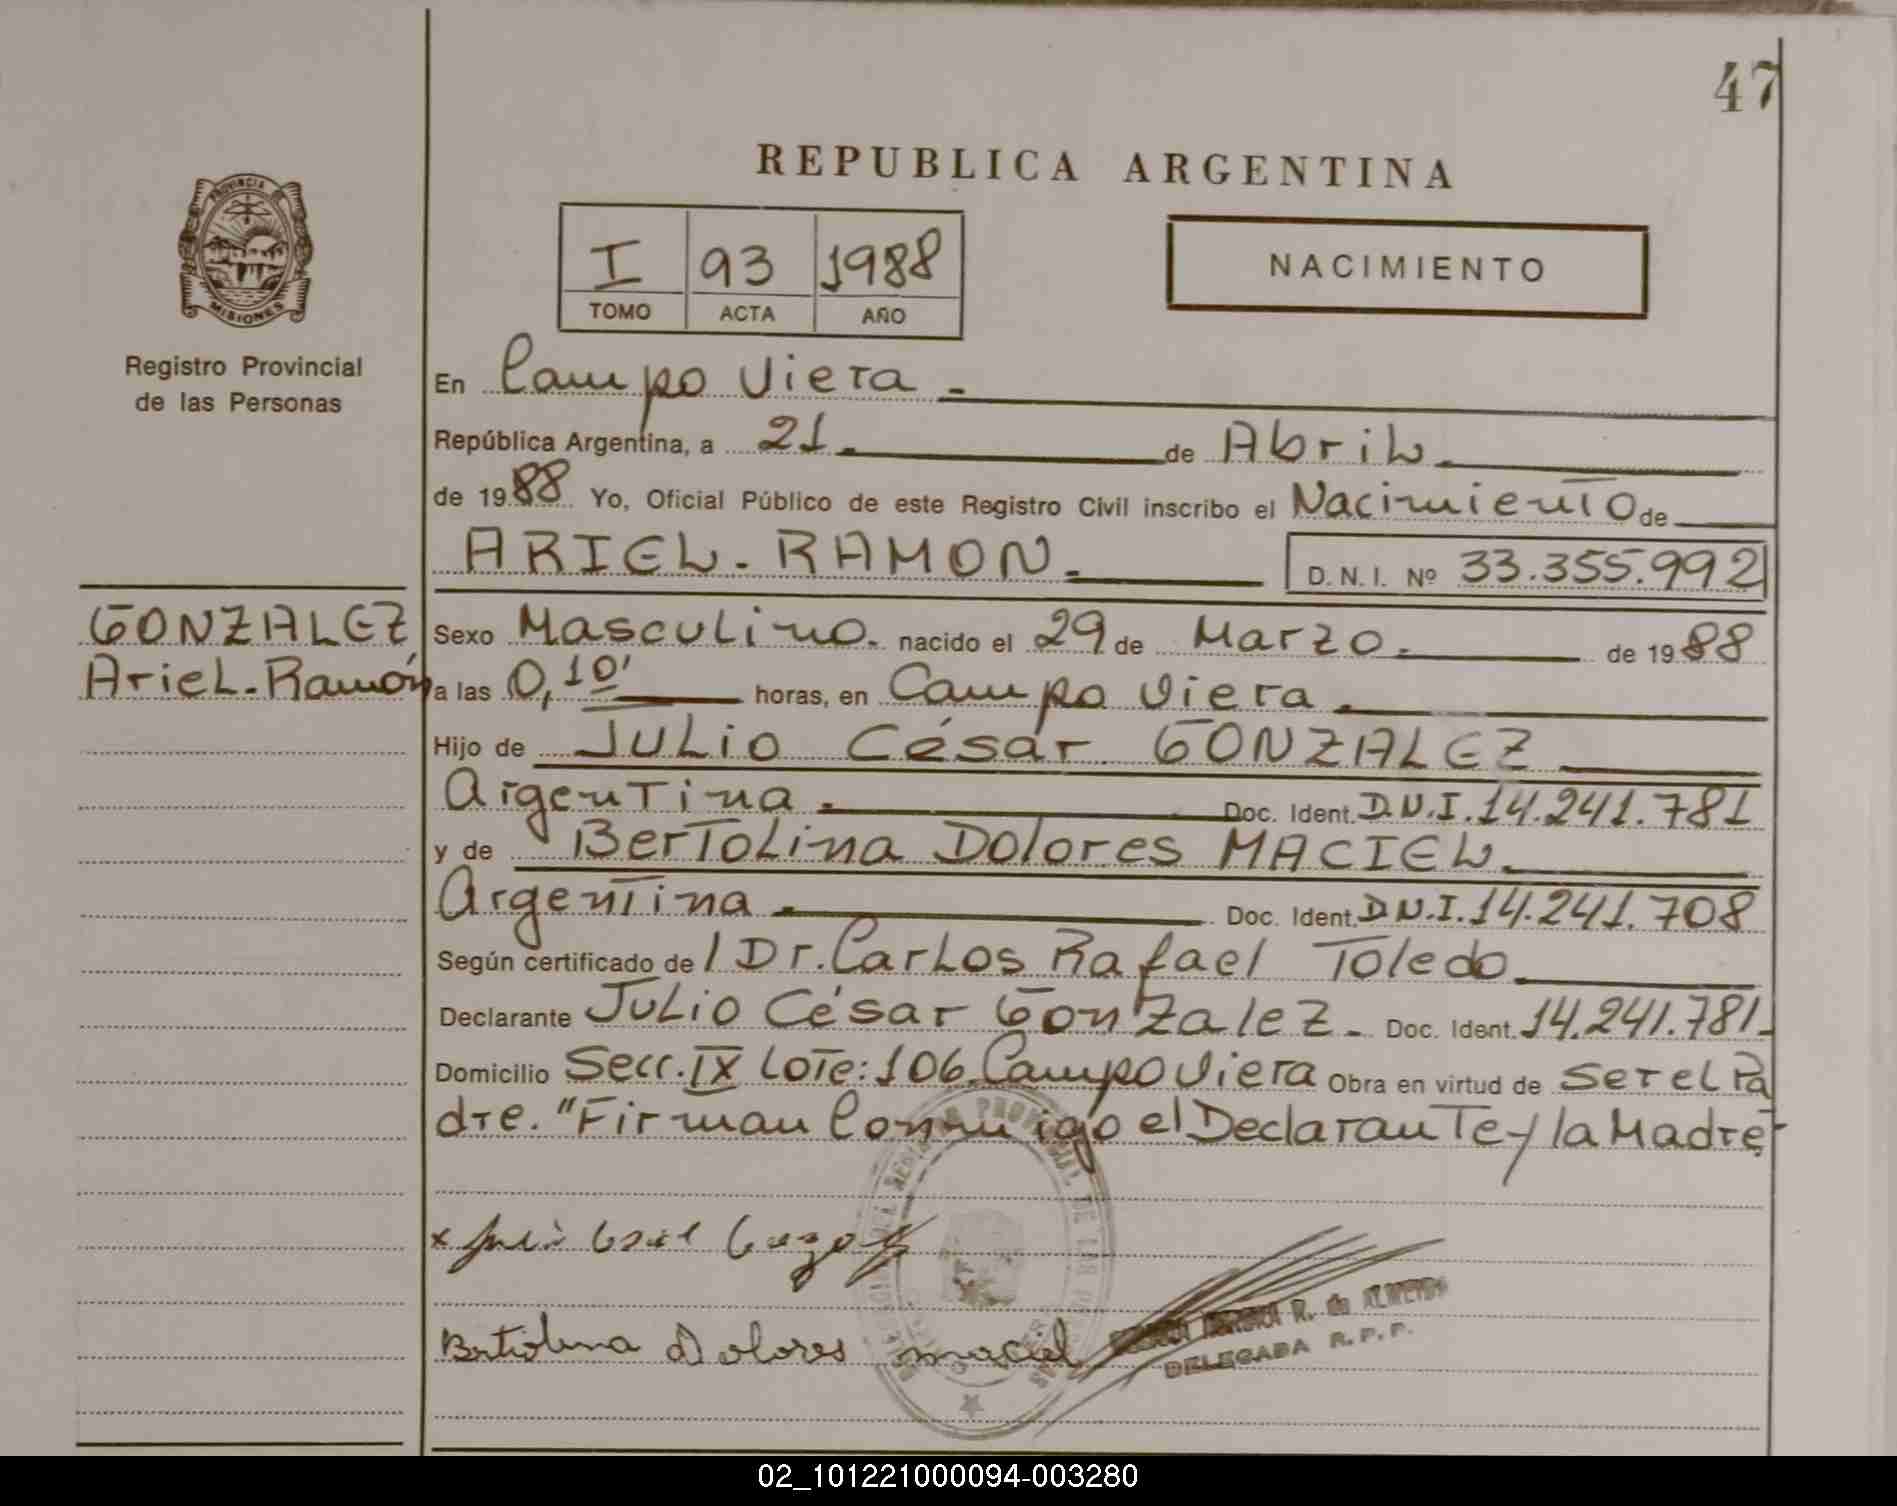 47
REPUBLICA ARGENTINA
PROVINCIA DE
MISIONES
Registro Provincial
de las Personas
I 93 1988
TOMO ACTA AÑO
NACIMIENTO
En Campo Viera.
República Argentina, a 21. de Abril
de 1988 Yo, Oficial Público de este Registro Civil inscribo el Nacimiento de
ARIEL. RAMON. D.N.I. Nº 33.355.992
GONZALEZ
Ariel. Ramón
Sexo Masculino. nacido el 29 de Marzo. de 1988
a las 0,10' horas, en Campo Viera.
Hijo de JULIO César GONZALEZ
Argentina. Doc. Ident. D.N.I. 14.241.781
y de BerTolina Dolores MACIEL.
Argentina. Doc. Ident. D.N.I. 14.241.708
Según certificado de l Dr. Carlos Rafael Toledo.
Declarante Julio César Gonzalez. Doc. Ident. 14.241.781.
Domicilio Secc. IX Lote: 106. Campo Viera Obra en virtud de ser el Pa
dre. "Firman Conmigo el Declarante y la Madre
x
Bertolina Dolores Maciel
R. de ALMEIDA
DELEGADA R.P.P.
02_101221000094-003280